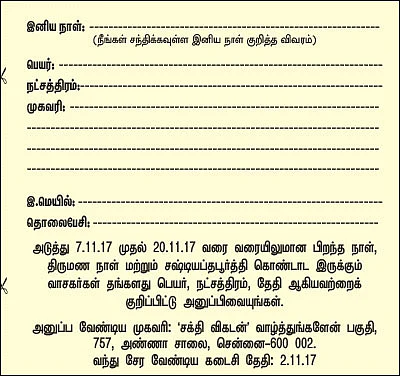 இனிய நாள்:
(நீங்கள் சந்திக்கவுள்ள இனிய நாள் குறித்த விவரம்)
பெயர்:
நட்சத்திரம்:
முகவரி:
இ.மெயில்:
தொலைபேசி:
அடுத்து 7.11.17 முதல் 20.11.17 வரை வரையிலுமான பிறந்த நாள்,
திருமண நாள் மற்றும் சஷ்டியப்தபூர்த்தி கொண்டாட இருக்கும்
வாசகர்கள் தங்களது பெயர், நட்சத்திரம், தேதி ஆகியவற்றைக்
குறிப்பிட்டு அனுப்பிவையுங்கள்.
அனுப்ப வேண்டிய முகவரி: 'சக்தி விகடன்' வாழ்த்துங்களேன் பகுதி,
757, அண்ணா சாலை, சென்னை-600 002.
வந்து சேர வேண்டிய கடைசி தேதி: 2.11.17